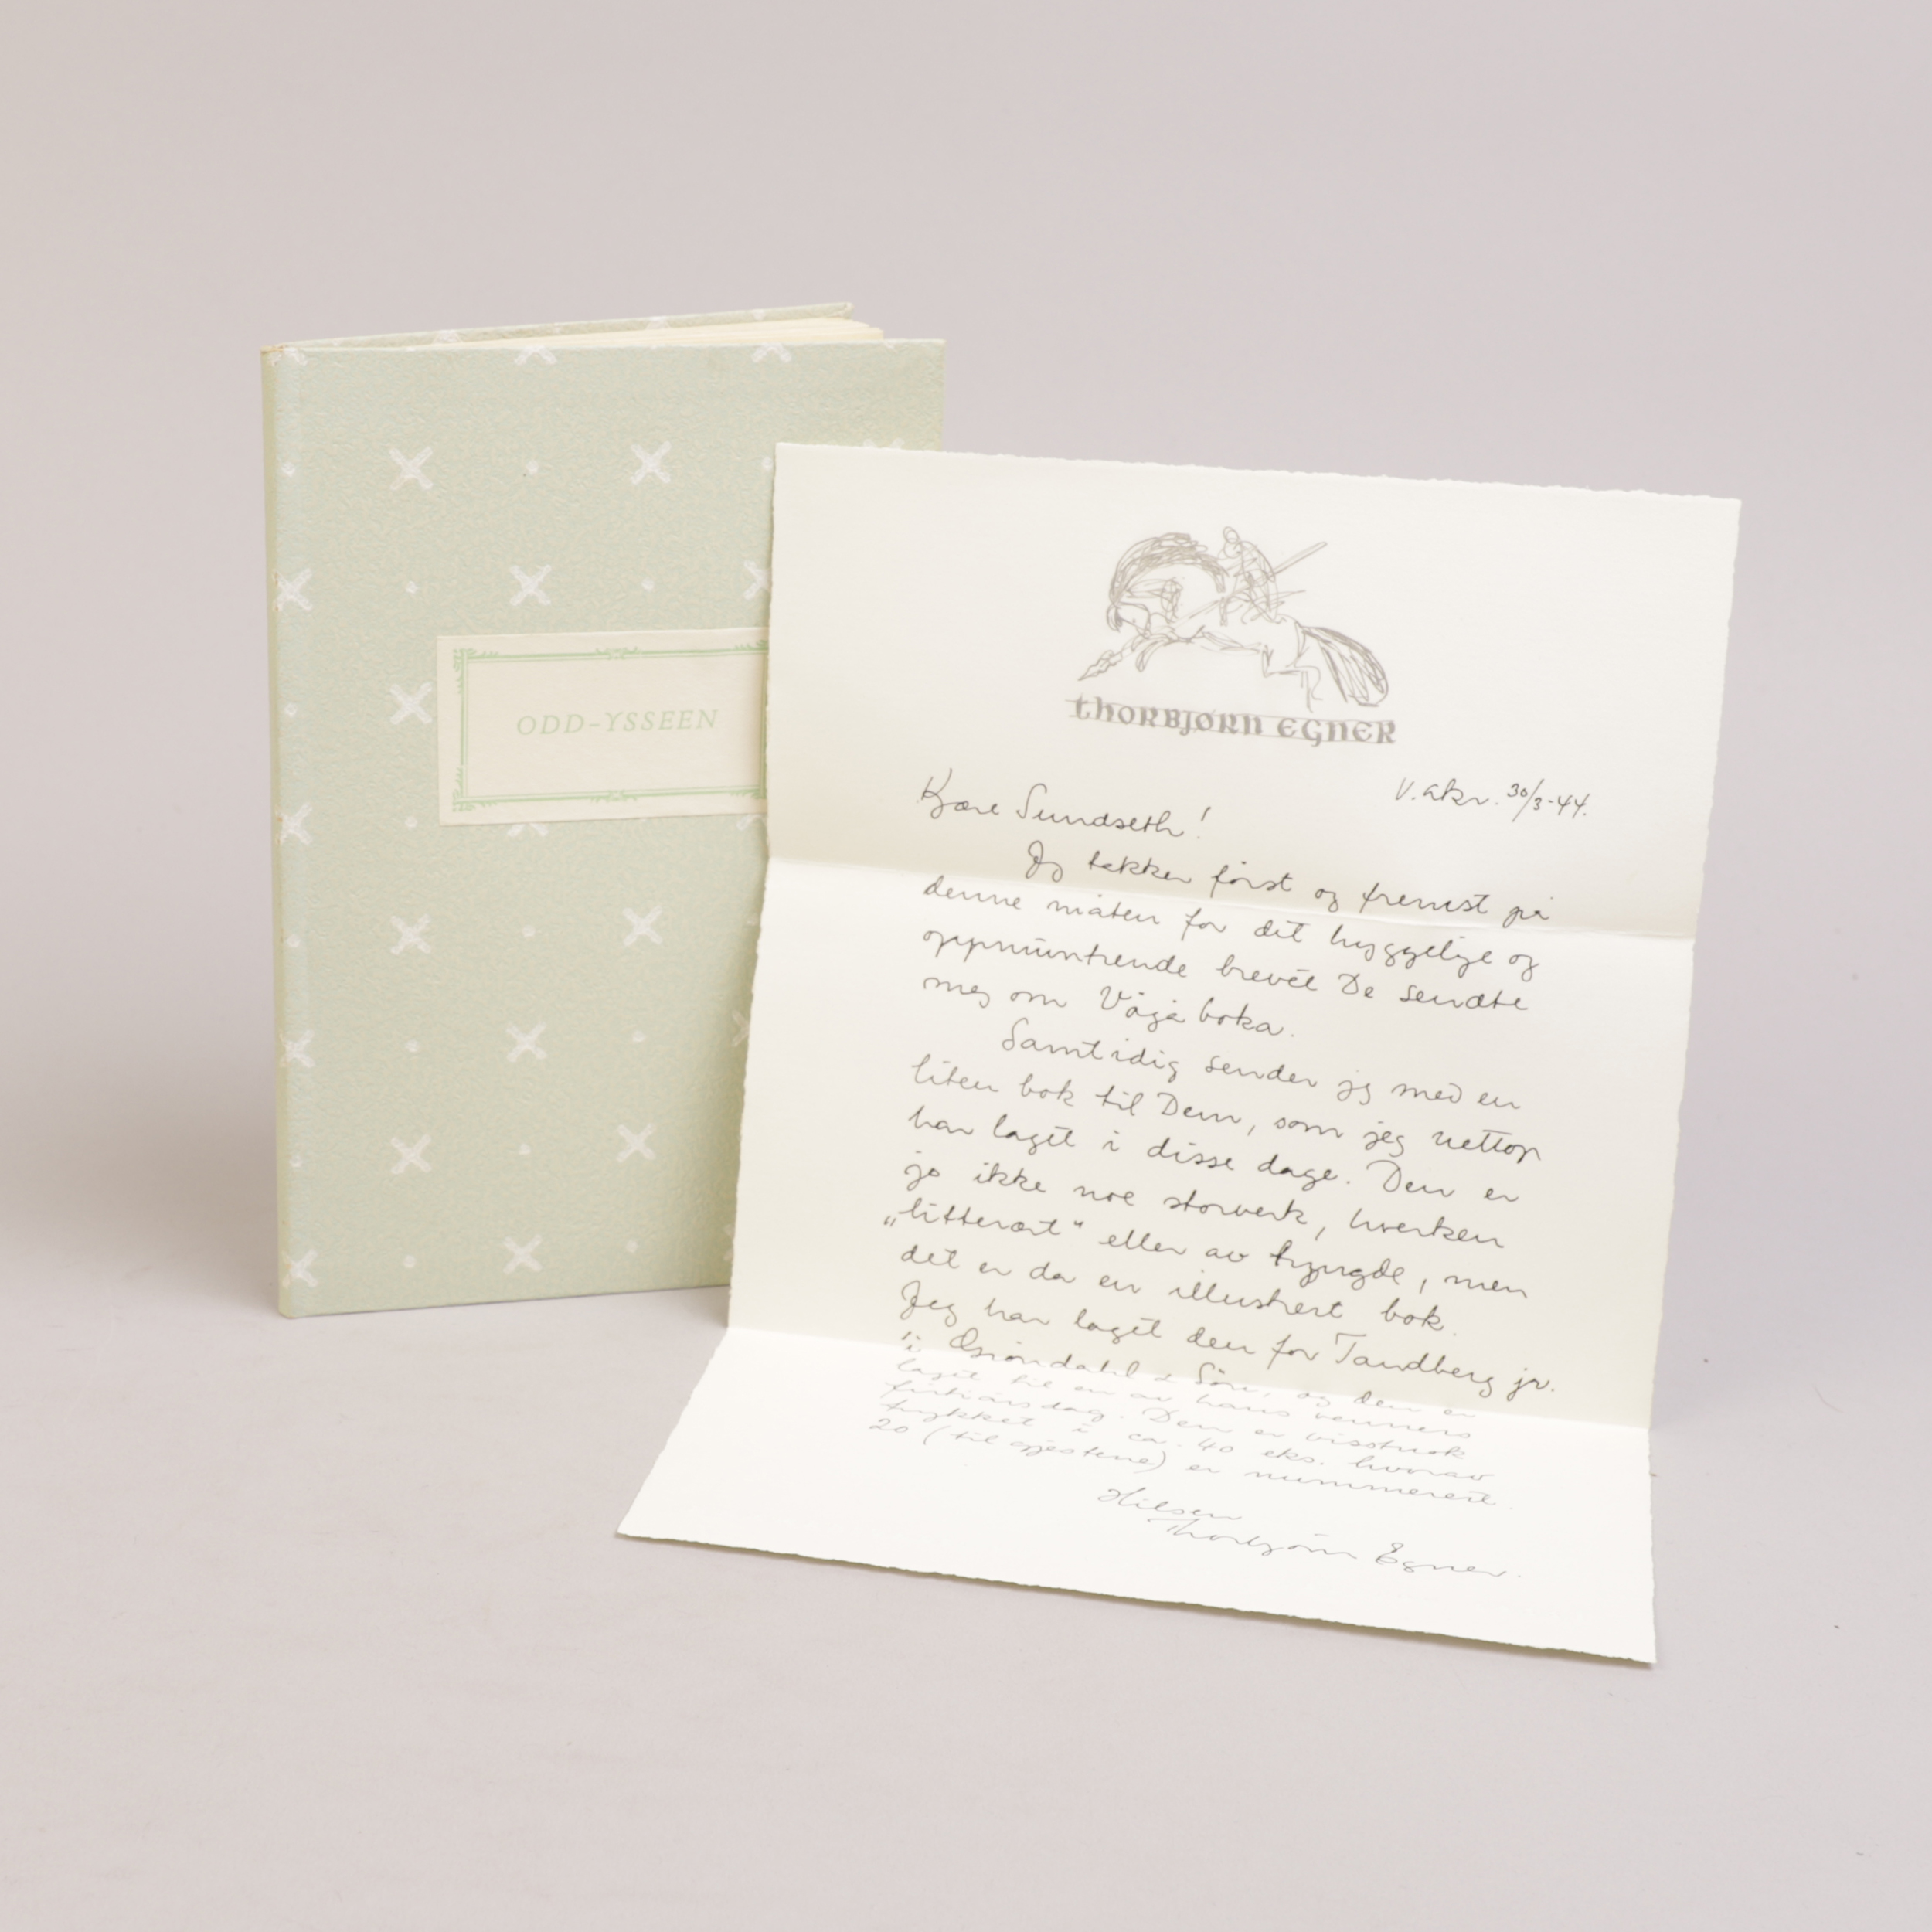 ODD-YSSEEN
THORBJØRN EGNER
V. akr. 30/3-44.
Kjære Sundseth!
Jeg takker først og fremst på
denne måten for det hyggelige og
oppmuntrende brevet De sendte
meg om Vågåboka.
Samtidig sender jeg med en
liten bok til Dem, som jeg nettop
har laget i disse dage. Den er
jo ikke noe storverk, hverken
„litterært" eller av tyngde, men
det er da en illustrert bok.
Jeg har laget den for Tandberg jr.
i Grøndahl & Søn, og den er
laget til en av hans venners
førtiårsdag. Den er visstnok
trykket i ca. 40 eks. hvorav
20 (til gjestene) er nummerert.
Hilsen
Thorbjørn Egner.